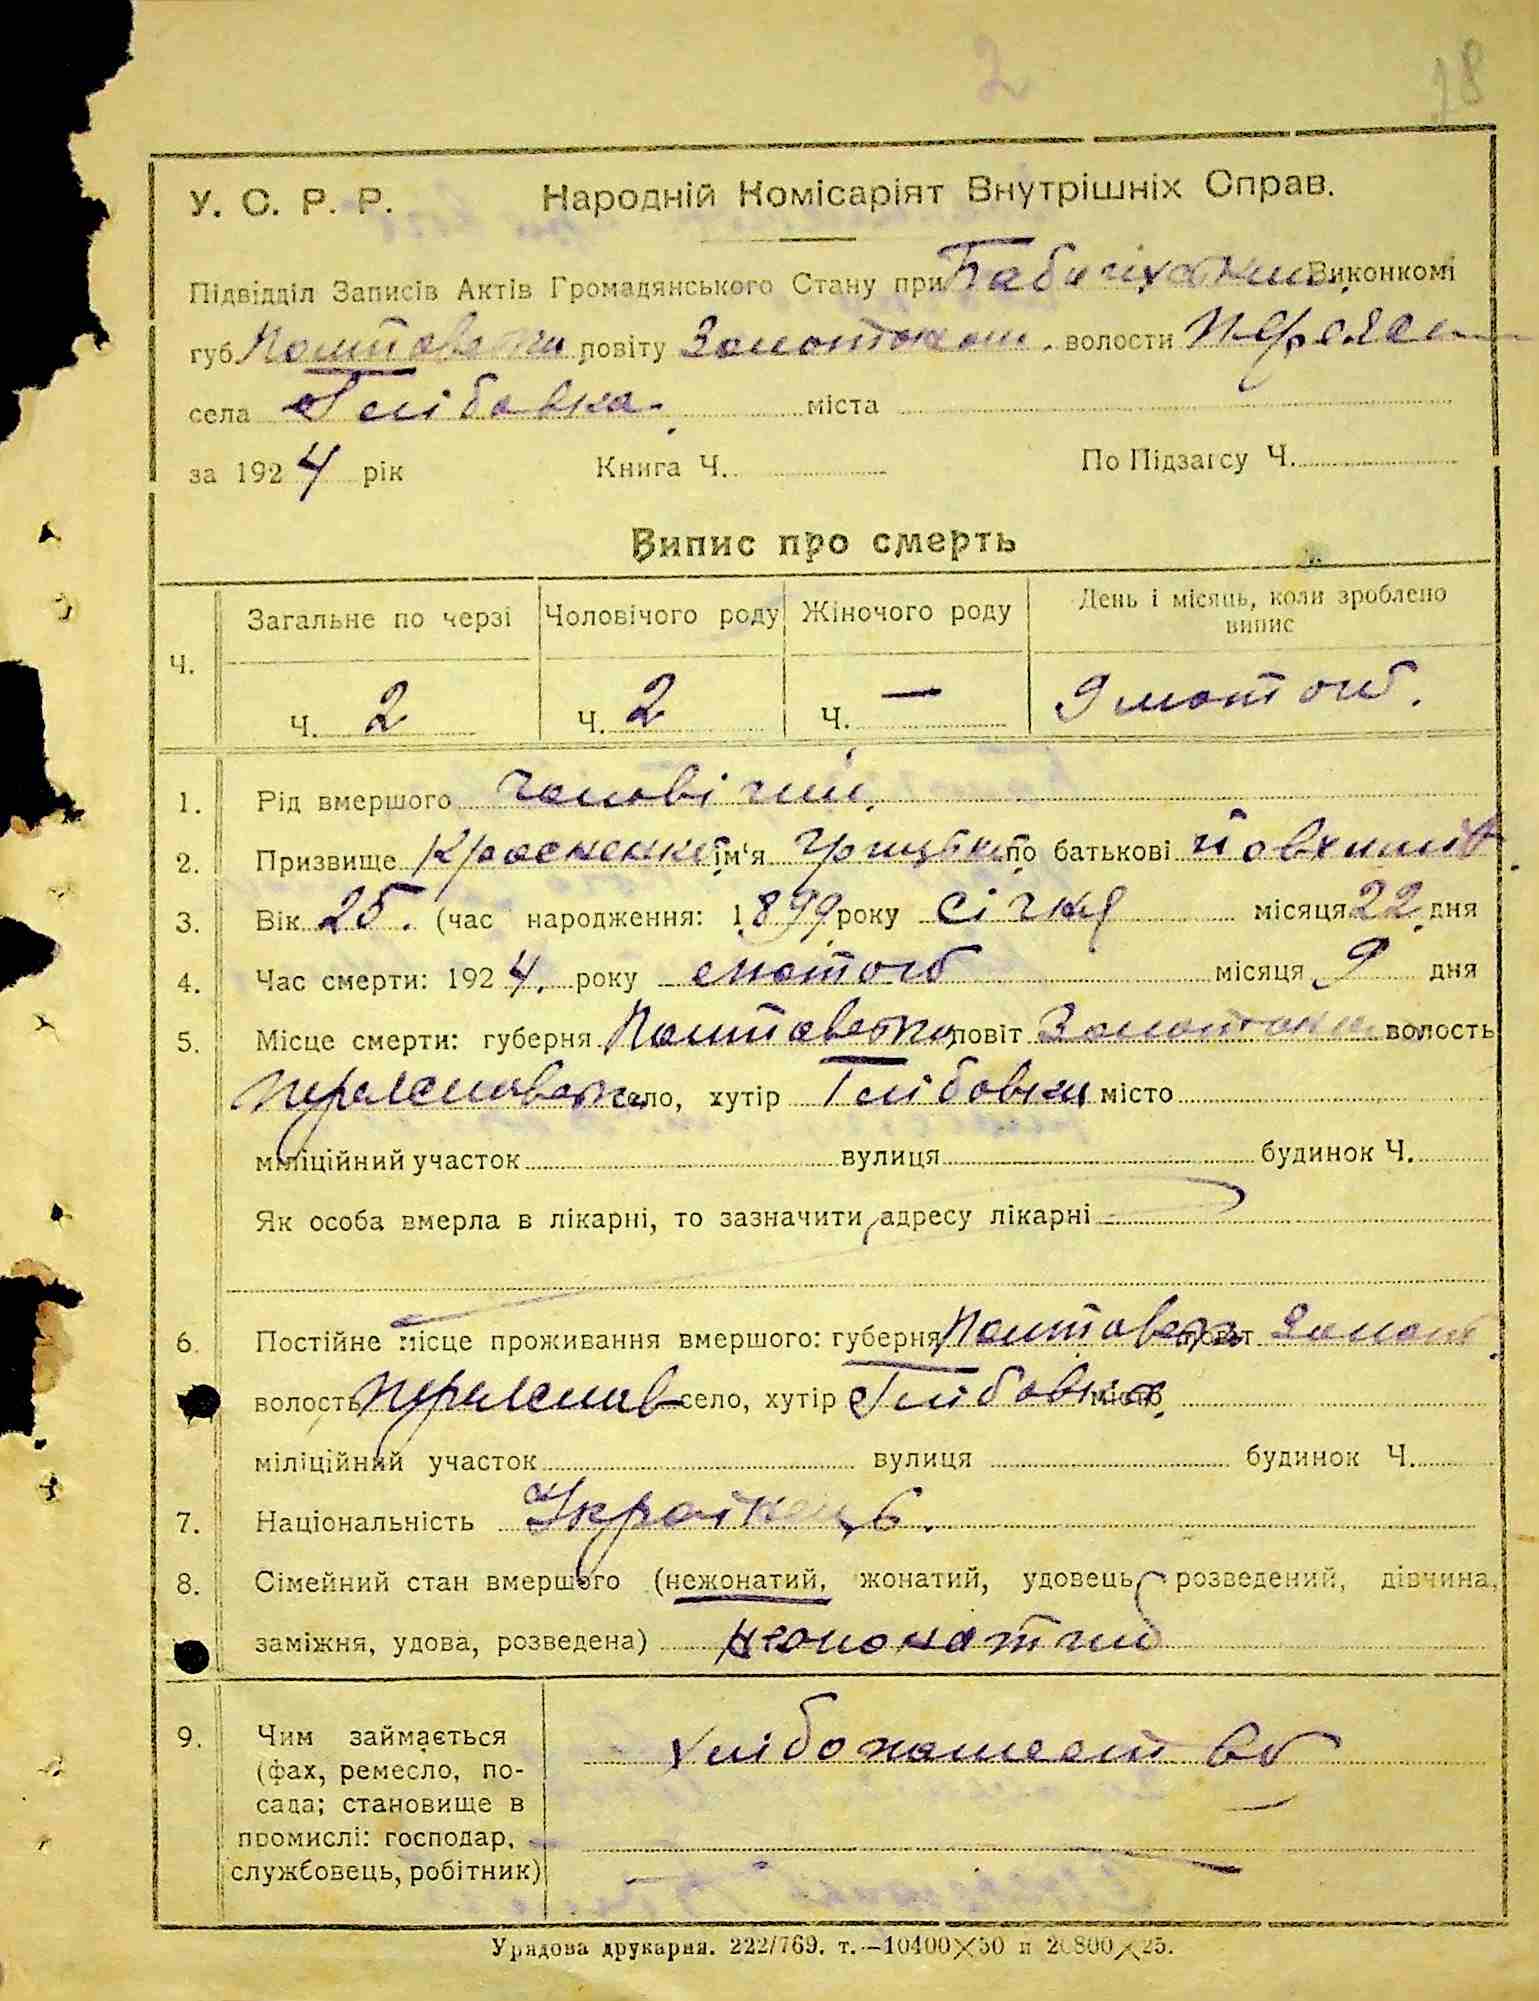 2
18
У. С. Р. Р. Народній Комісаріят Внутрішніх Справ.
Підвідділ Записів Актів Громадянського Стану при Виконкомі
губ. Полтавська повіту Золотонош. волости Переясл
села Глібовка. міста
за 1924 рік Книга Ч. По Підзагсу Ч.
Випис про смерть
Ч. Загальне по черзі Чоловічого роду Жіночого роду День і місяць, коли зроблено випис
Ч. 2 Ч. 2 Ч. — 9 лютого.
1. Рід вмершого чоловічий
2. Призвище Красненко ім'я Грицько по батькові Йовхимів
3. Вік 25. (час народження: 1899 року січня місяця 22 дня
4. Час смерти: 1924. року лютого місяця 9 дня
5. Місце смерти: губерня Полтавська повіт Золотонош волость
Переяславська село, хутір Глібовка місто
міліційний участок вулиця будинок Ч.
Як особа вмерла в лікарні, то зазначити адресу лікарні
6. Постійне місце проживання вмершого: губерня Полтавськ повіт Золот
волость Переяслав село, хутір Глібовка місто
міліційний участок вулиця будинок Ч.
7. Національність Україньць.
8. Сімейний стан вмершого (нежонатий, жонатий, удовець, розведений, дівчина,
заміжня, удова, розведена) нежонатий
9. Чим займається хліборобство
(фах, ремесло, по-
сада; становище в
промислі: господар,
службовець, робітник)
Урядова друкарня. 222/769. т.—10400×50 и 20800×25.